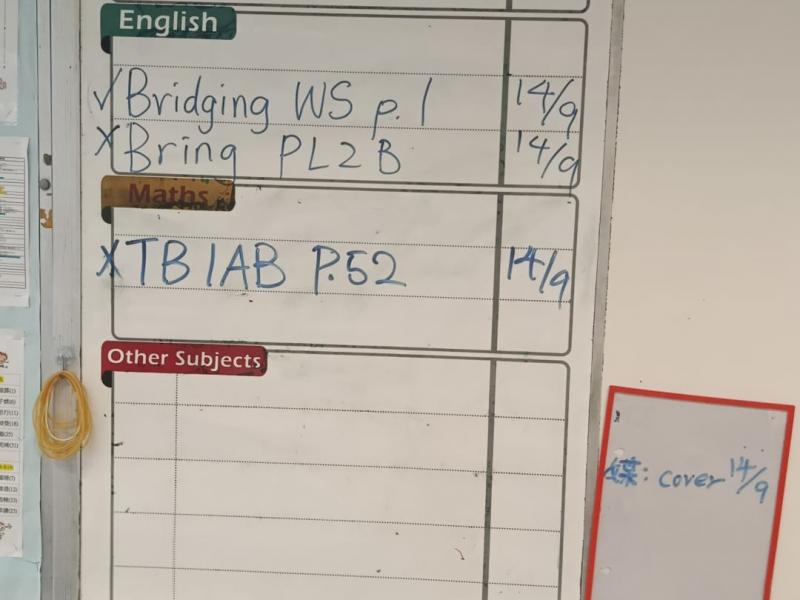 English
✓ Bridging WS p.1 14/9
X Bring PL2B 14/9
Maths
X TB 1AB P.52 14/9
Other Subjects
: cover 14/9